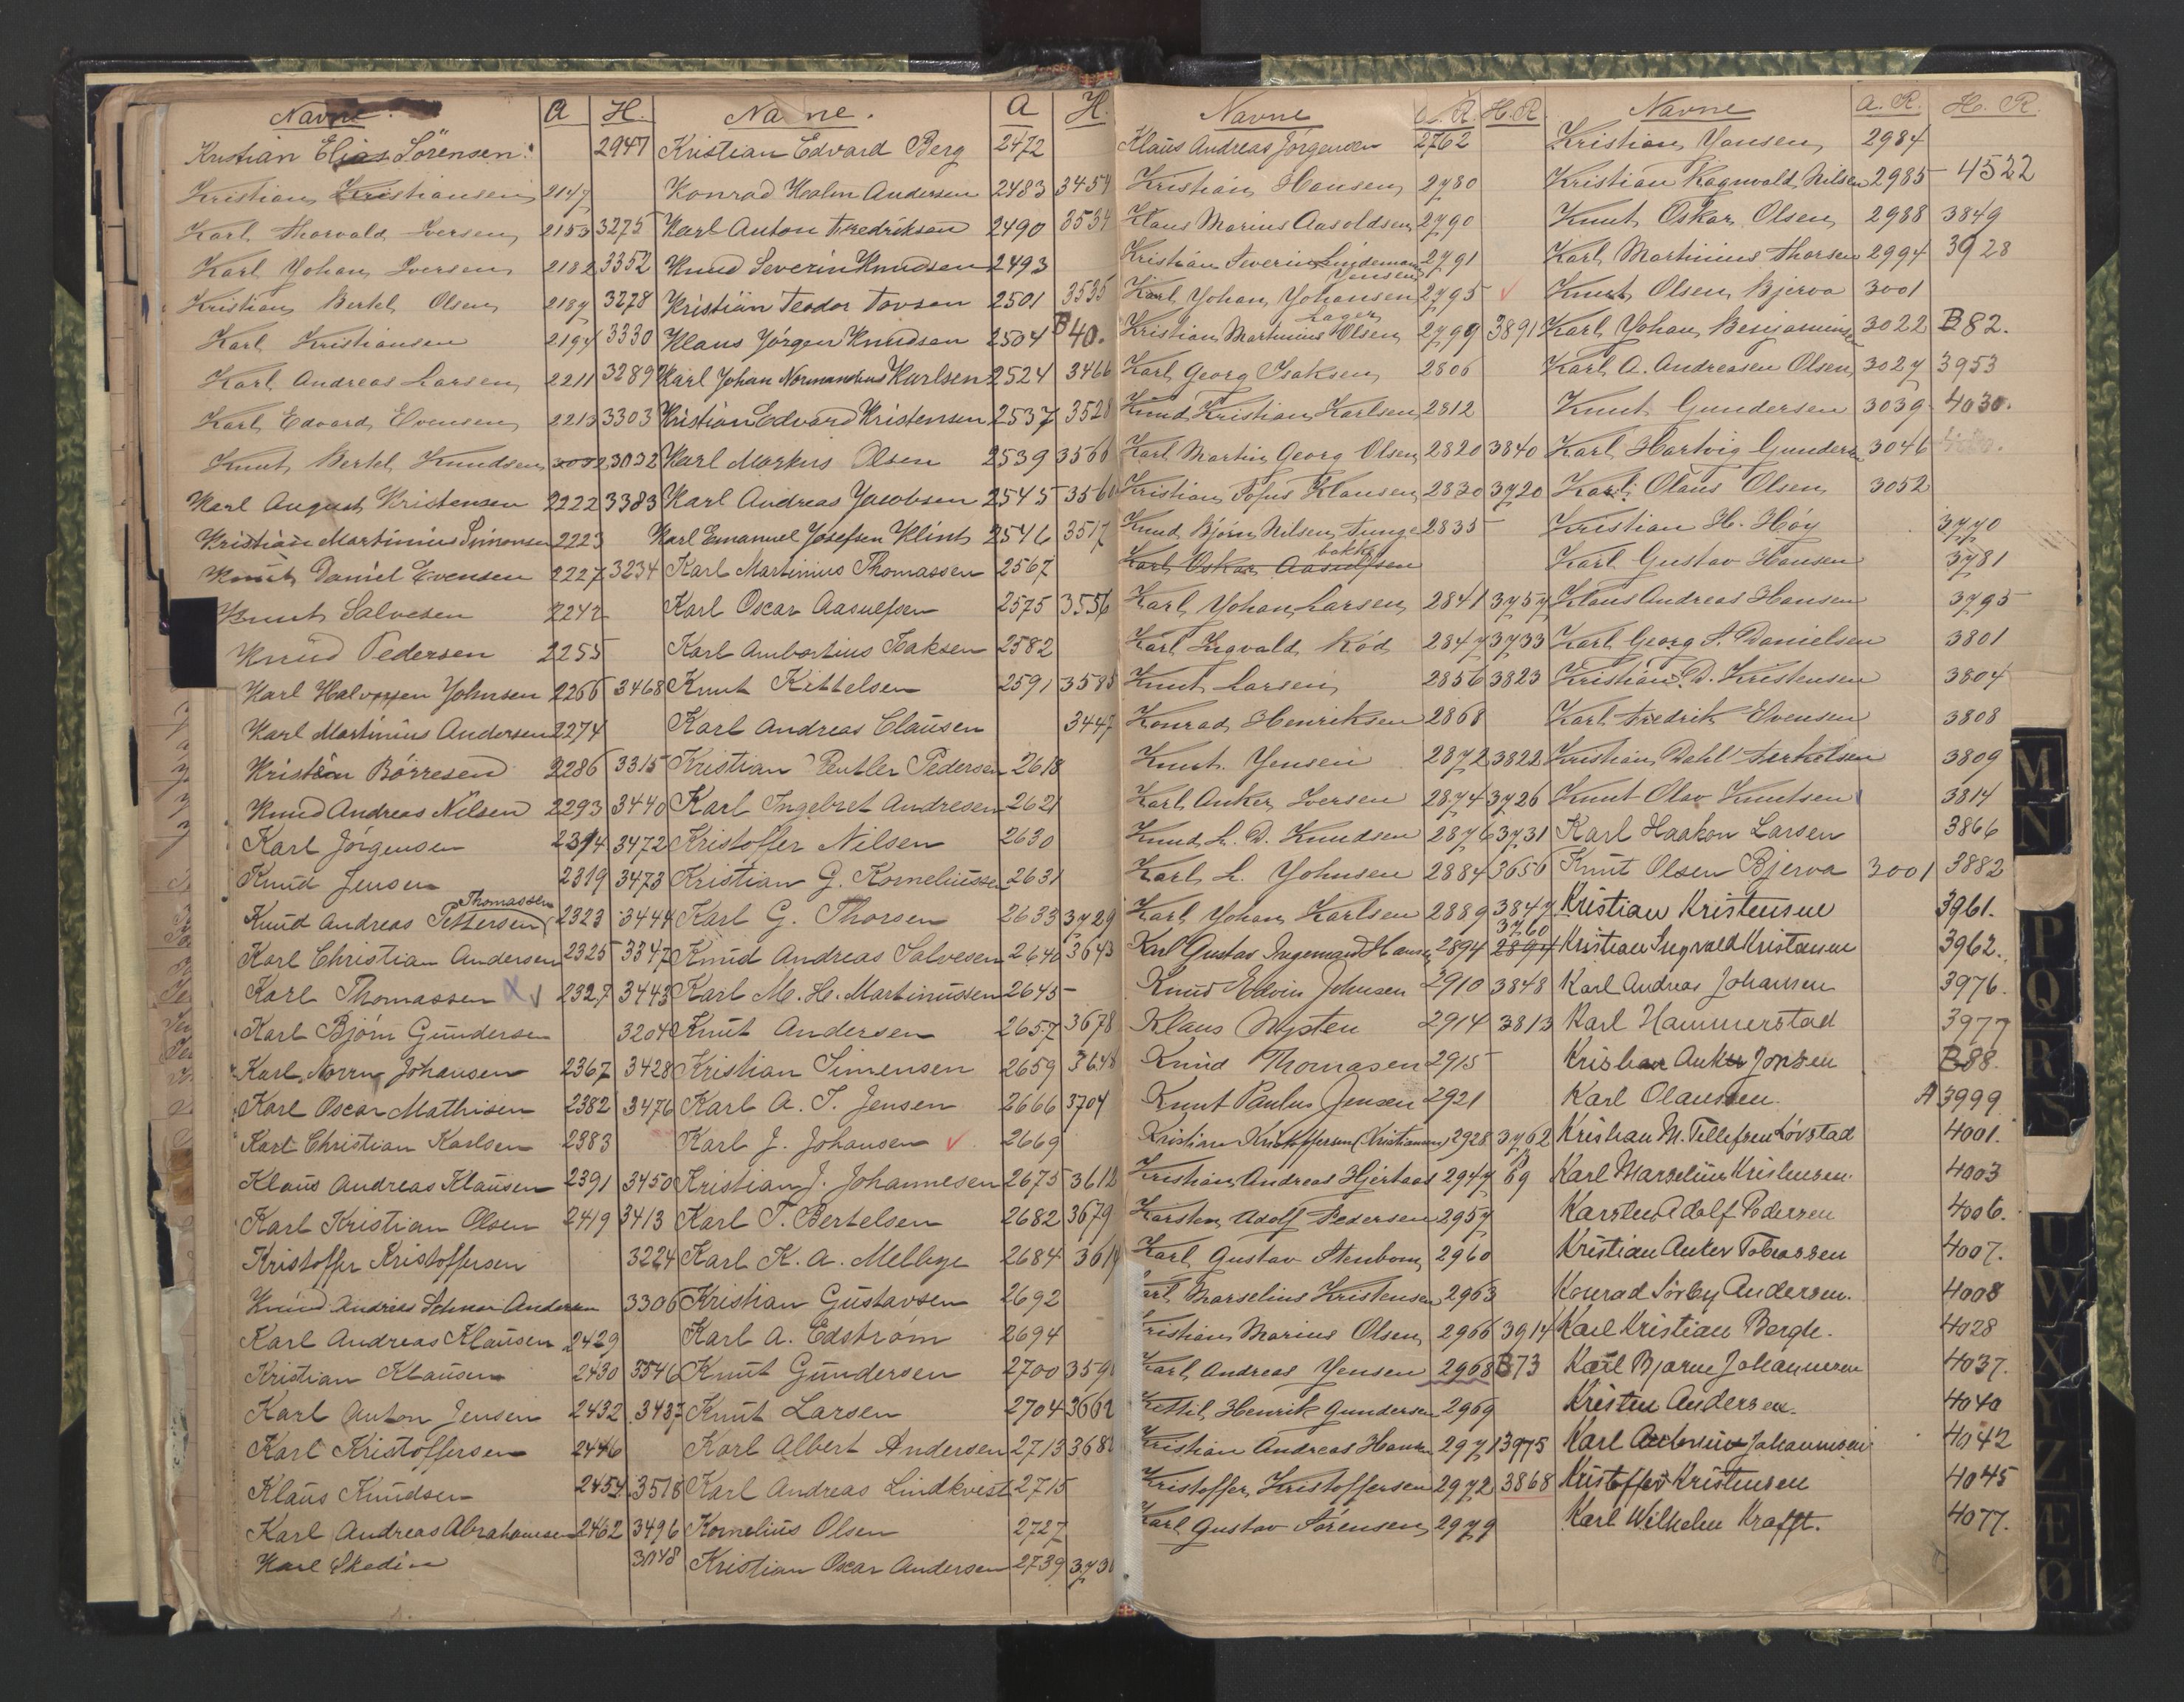 Navne. A H.
Kristian Elias Sörensen. 2947
Kristian Kristiansen 2147
Karl Thorvald Iversen 2153 3275
Karl Johan Iversen 2182 3352
Kristian Bertel Olsen 2187 3278
Karl Kristiansen 2194 3330
Karl Andreas Larsen 2211 3289
Karl Edvard Evensen 2213 3303
Knut Bertel Knudsen 3032
Karl August Kristensen 2222 3383
Kristian Martinius Simonsen 2223
Knut Daniel Evensen 2227 3234
Knut Salvesen 2242
Knud Pedersen 2255
Karl Halvorsen Johnsen 2266 3468
Karl Martinius Andersen 2274
Kristian Börresen 2286 3315
Knud Andreas Nilsen 2293 3440
Karl Jörgensen 2314 3472
Knud Jensen 2319 3473
Thomassen
Knud Andreas Pettersen 2323 3444
Karl Christian Andersen 2325 3347
Karl Thomassen X √ 2327 3443
Karl Bjórn Gundersen 3204
Karl Johansen 2367 3428
Karl Oscar Mathisen 2382 3476
Karl Christian Karlsen 2383
Klaus Andreas Klausen 2391 3450
Karl Kristian Olsen 2419 3413
Kristoffer Kristoffersen 3224
Knud Andreas Andersen 3306
Karl Andreas Klausen 2429
Kristian Klausen 2430 3546
Karl Anton Jensen 2432 3437
Karl Kristoffersen 2446
Klaus Knudsen 2454 3518
Karl Andreas Abrahamsen 2462 3496
Karl Skedin 3048
Navne. A H.
Kristian Edvard Berg 2472
Konrad Holm Andersen 2483 3454
Karl Anton Fredriksen 2490 3534
Knud Severin Knudsen 2493
Kristian Teodor Tovsen 2501 3535
Klaus Jörgen Knudsen 2504 B 40.
Karl Johan Normandius Karlsen 2524 3466
Kristian Edvard Kristensen 2537 3528
Karl Markus Olsen 2539 3566
Karl Andreas Jacobsen 2545 3560
Karl Emanuel Josefsen Klint 2546 3517
Karl Martinius Thomassen 2567
Karl Oscar Aasulfsen 2575 3556
Karl Ambortius Isaksen 2582
Knut Kittelsen 2591 3585
Karl Andreas Clausen 3447
Kristian Pedersen 2618
Karl Ingebret Andresen 2621
Kristoffer Nilsen 2630
Kristian G. Korneliussen 2631
Karl G. Thorsen 2633 3729
Knud Andreas Salvesen 2640 3643
Karl M. H. Martinussen 2645
Knut Andersen 2657 3678
Kristian Simensen 2659 3648
Karl A. T. Jensen 2666 3704
Karl J. Johansen √ 2669
Kristian J. Johannesen 2675 3612
Karl T. Bertelsen 2682 3679
Karl K. A. Mellbye 2684 361
Kristian Gustavsen 2692
Karl A. Edström 2694
Knut Gundersen 2700 359
Knut Larsen 2704 3662
Karl Albert Andersen 2713 368
Karl Andreas Lindkvist 2715
Kornelius Olsen 2727
Kristian Oscar Andersen 2739 373
Navne A. R. H. R.
Klaus Andreas Jörgensen 2762
Kristian Hansen 2780
Klaus Marius Aasoldsen 2790
Kristian Severin Lindeman 2791
Jensen
Karl Johan Johansen 2795 √
Lager
Kristian Martinius Olsen 2799 3891
Karl Georg Isaksen 2806
Knud Kristian Karlsen 2812
Karl Martin Georg Olsen 2820 3840
Kristian Tofus Klausen 2830 3720
Knud Björn Nilsen Tunge 2835
bakke
Karl Oskar Aasulfsen
Karl Johan Larsen 2841 3757
Karl Ingvald Röd 2847 3733
Knut Larsen 2856 3823
Konrad Henriksen 2868
Knut Jensen 2872 3822
Karl Anker Iversen 2874 3726
Knud L. D. Knudsen 2876 3731
Karl L. Johnsen 2884 3656
Karl Johan Karlsen 2889 3847
3760
Karl Gustav Ingemand Hansen 2894 2894
Knud Edvin Johnsen 2910 3848
Klaus Nysten 2914 3813
Knud Thomasen 2915
Knut Paulus Jensen 2921
Kristian Kristoffersen (Kristiansen) 2928 3762
Kristian Andreas Hjertaas 2947 B 69
Karsten Adolf Pedersen 2957
Karl Gustav Stenbom 2960
Karl Marselius Kristensen 2963
Kristian Marius Olsen 2966 3914
Karl Andreas Jensen 2968 B73
Kettil Henrik Gundersen 2969
Kristian Andreas Hansen 2971 3975
Kristoffer Kristoffersen 2972 3868
Karl Gustav Sörensen 2979
Navne A. R. H. R.
Kristian Jansen 2984
Kristian Ragnvald Nilsen 2985 4522
Knut Oskar Olsen 2988 3849
Karl Martinius Thorsen 2994 3928
Knut Olsen Bjerva 3001
Karl Johan Benjaminsen 3022 B 82.
Karl A. Andreasen Olsen 3027 3953
Knut Gundersen 3039 4030.
Karl Hartvig Gundersen 3046
Karl Olaus Olsen 3052
Kristian H. Höy 3770
Karl Gustav Hansen 3781
Klaus Andreas Hansen 3795
Karl Georg S. Danielsen 3801
Kristian D. Kristensen 3804
Karl Fredrik Evensen 3808
Kristian Dahl Terkelsen 3809
Knut Olav Knutsen 3814
Karl Haakon Larsen 3866
Knut Olsen Bjerva 3001 3882
Kristian Kristensen 3961.
Kristian Ingvald Kristensen 3962.
Karl Andreas Johansen 3976.
Karl Hammerstad 3977
Kristian Anker Jonsen B88.
Karl Olaussen. A 3999
Kristian M. Tellefsen Lövstad 4001.
Karl Marselius Kristensen. 4003
Karsten Adolf Pedersen 4006.
Kristian Anker Tobiassen 4007.
Konrad Sörby Andersen. 4008
Karl Kristian Bergh. 4028
Karl Bjarne Johannesen 4037.
Kristen Andersen. 4040
Karl Johannesen 4042
Kristoffer Kristensen 4045
Karl Wilhelm Krafft. 4077.
M
N
P
Q
R
S
U
W
X
Y
Z
Æ
Ø